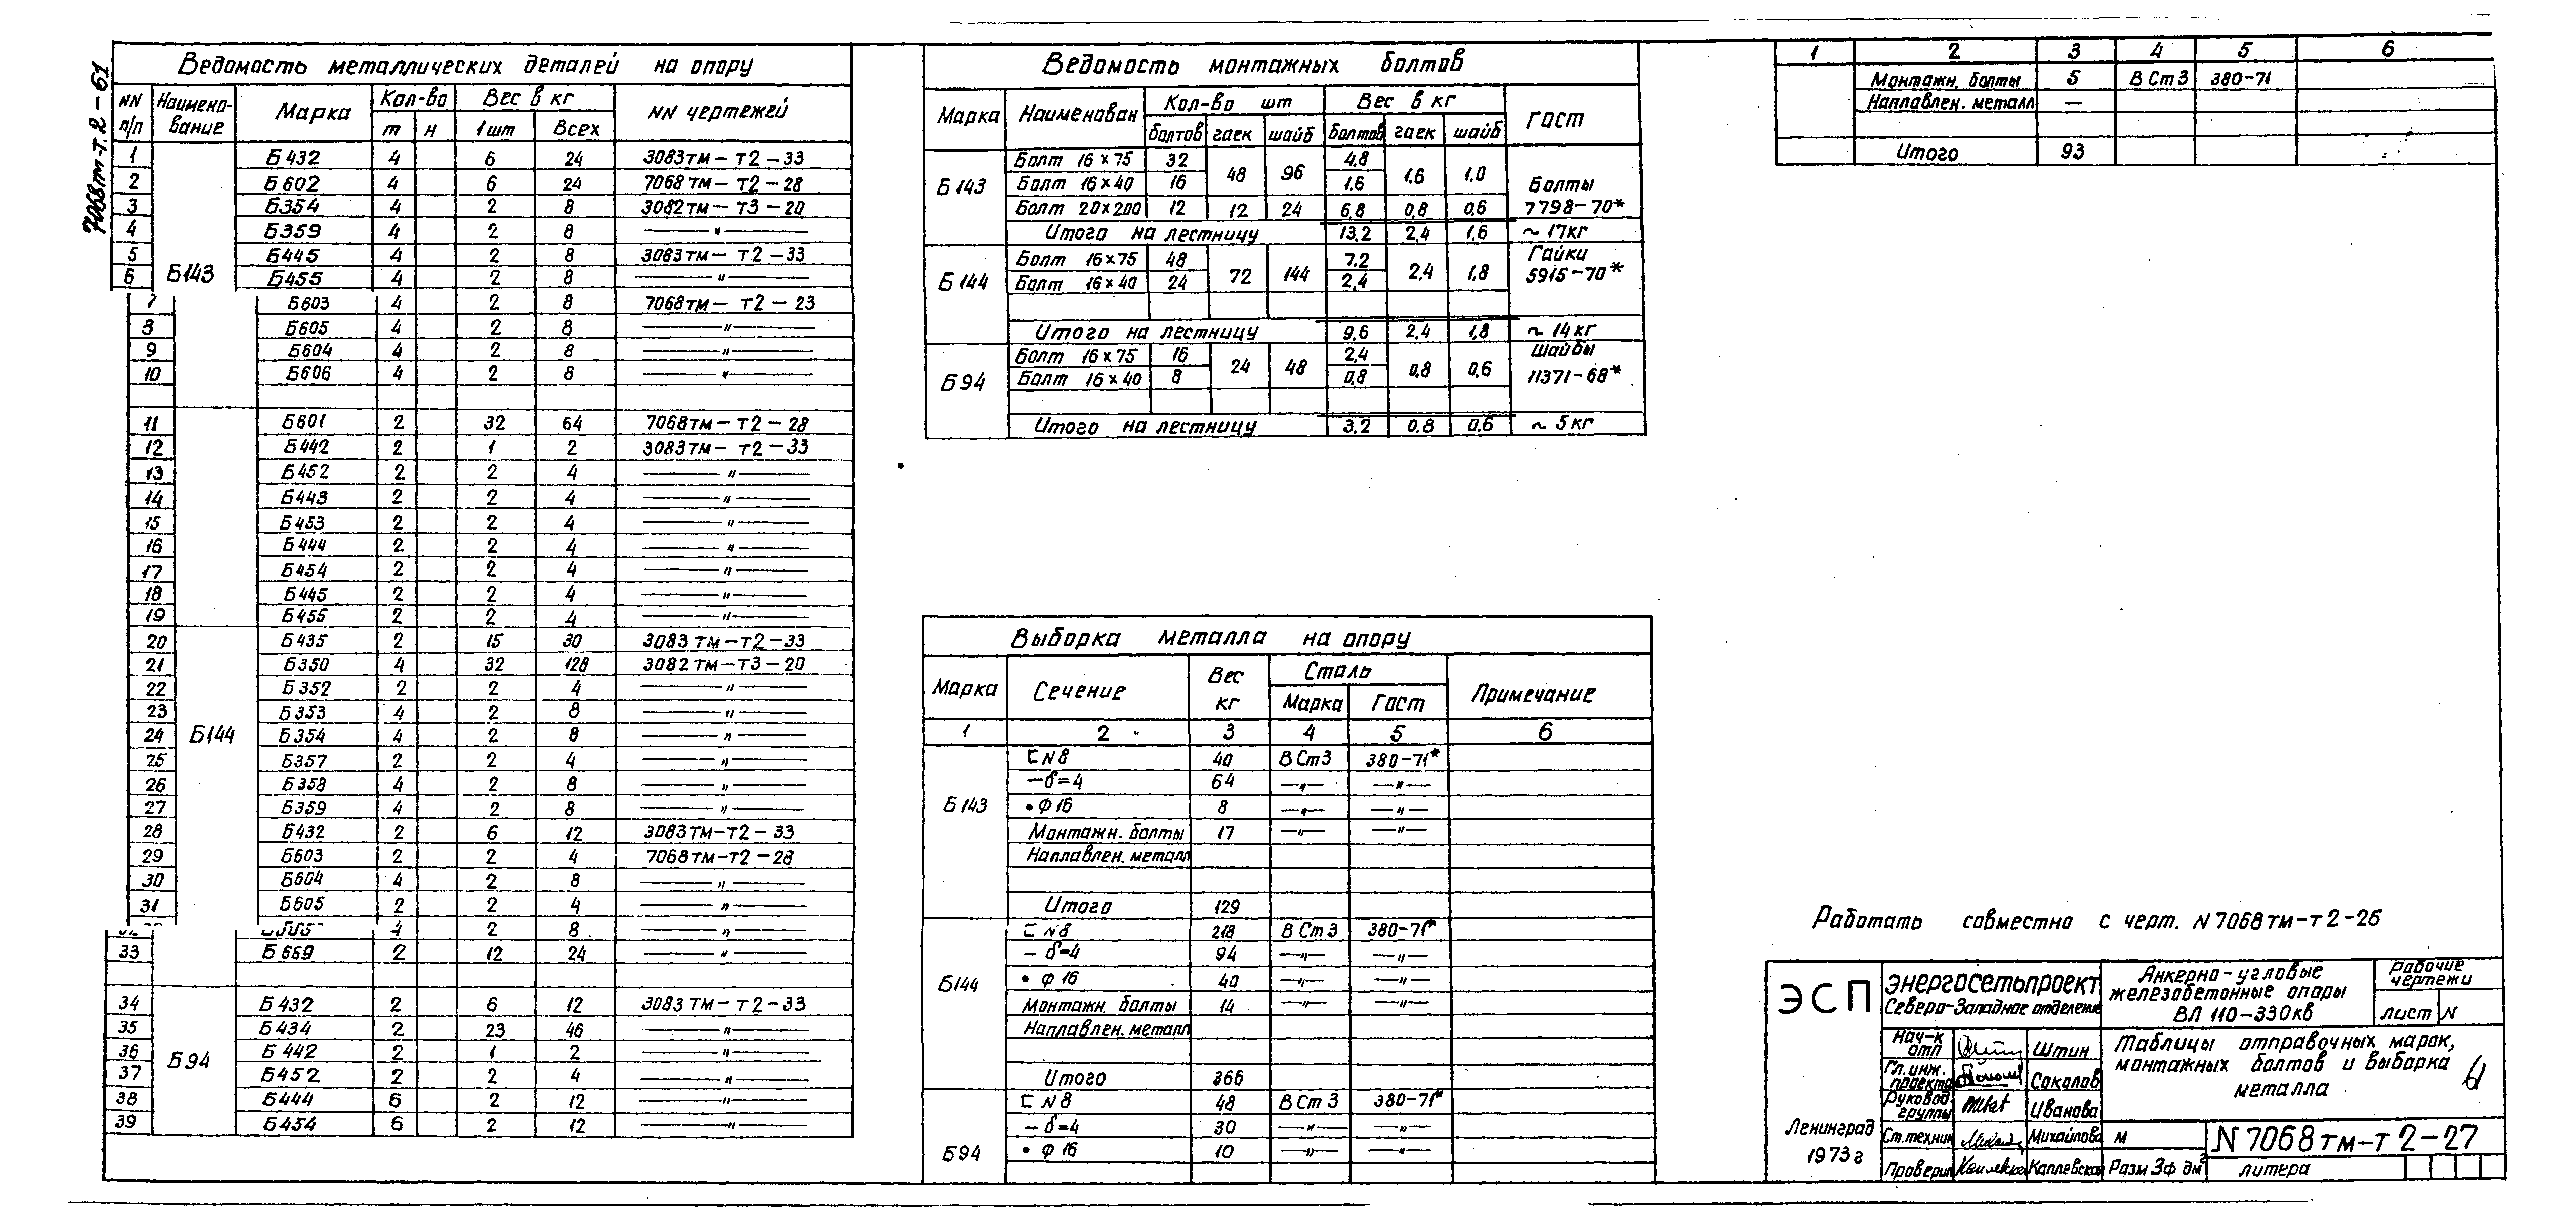 7068тм-т.2-61
Ведомость металлических деталей на опору
NN п/п Наименование Марка Кол-во Вес в кг NN чертежей
т н 1шт Всех
1 Б432 4 6 24 3083тм-т2-33
2 Б602 4 6 24 7068тм-т2-28
3 Б354 4 2 8 3082тм-т3-20
4 Б359 4 2 8 —"—
5 Б445 4 2 8 3083тм-т2-33
6 Б143 Б455 4 2 8 —"—
7 Б603 4 2 8 7068тм-т2-23
8 Б605 4 2 8 —"—
9 Б604 4 2 8 —"—
10 Б606 4 2 8 —"—
11 Б601 2 32 64 7068тм-т2-28
12 Б442 2 1 2 3083тм-т2-33
13 Б452 2 2 4 —"—
14 Б443 2 2 4 —"—
15 Б453 2 2 4 —"—
16 Б444 2 2 4 —"—
17 Б454 2 2 4 —"—
18 Б445 2 2 4 —"—
19 Б455 2 2 4 —"—
20 Б435 2 15 30 3083тм-т2-33
21 Б350 4 32 128 3082тм-т3-20
22 Б352 2 2 4 —"—
23 Б353 4 2 8 —"—
24 Б144 Б354 4 2 8 —"—
25 Б357 2 2 4 —"—
26 Б358 4 2 8 —"—
27 Б359 4 2 8 —"—
28 Б432 2 6 12 3083тм-т2-33
29 Б603 2 2 4 7068тм-т2-28
30 Б604 4 2 8 —"—
31 Б605 2 2 4 —"—
4 2 8 —"—
33 Б669 2 12 24 —"—
34 Б432 2 6 12 3083тм-т2-33
35 Б434 2 23 46 —"—
36 Б94 Б442 2 1 2 —"—
37 Б452 2 2 4 —"—
38 Б444 6 2 12 —"—
39 Б454 6 2 12 —"—
Ведомость монтажных болтов
Марка Наименован Кол-во шт Вес в кг ГОСТ
болтов гаек шайб болтов гаек шайб
Б143 Болт 16×75 32 48 96 4,8 1,6 1,0
Болт 16×40 16 1,6 Болты
Болт 20×200 12 12 24 6,8 0,8 0,6 7798-70*
Итого на лестницу 13,2 2,4 1,6 ~17кг
Б144 Болт 16×75 48 72 144 7,2 2,4 1,8 Гайки
Болт 16×40 24 2,4 5915-70*
Итого на лестницу 9,6 2,4 1,8 ~14кг
Б94 Болт 16×75 16 24 48 2,4 0,8 0,6 Шайбы
Болт 16×40 8 0,8 11371-68*
Итого на лестницу 3,2 0,8 0,6 ~5кг
Выборка металла на опору
Марка Сечение Вес кг Сталь Примечание
Марка Гост
1 2 3 4 5 6
[ N8 40 ВСт3 380-71*
—δ=4 64 —"— —"—
Б143 • Ф16 8 —"— —"—
Монтажн. болты 17 —"— —"—
Наплавлен. металл
Итого 129
[ N8 218 ВСт3 380-71*
—δ=4 94 —"— —"—
Б144 • Ф16 40 —"— —"—
Монтажн. болты 14 —"— —"—
Наплавлен. металл
Итого 366
[ N8 48 ВСт3 380-71*
—δ=4 30 —"— —"—
Б94 • Ф16 10 —"— —"—
1 2 3 4 5 6
Монтажн. болты 5 ВСт3 380-71
Наплавлен. металл —
Итого 93
Работать совместно с черт. N7068тм-т2-26
ЭСП
Энергосетьпроект
Северо-Западное отделение
Анкерно-угловые
железобетонные опоры
ВЛ 110-330кв
Рабочие
чертежи
лист N
Нач-к отп Штин
Гл.инж. проекта Соколов
Руковод. группы Иванова
Ст.техник Михайлова
Проверил Каплевская
Таблицы отправочных марок,
монтажных болтов и выборка
металла
Ленинград
1973г
М
N7068тм-т2-27
Разм 3ф дм²
литера